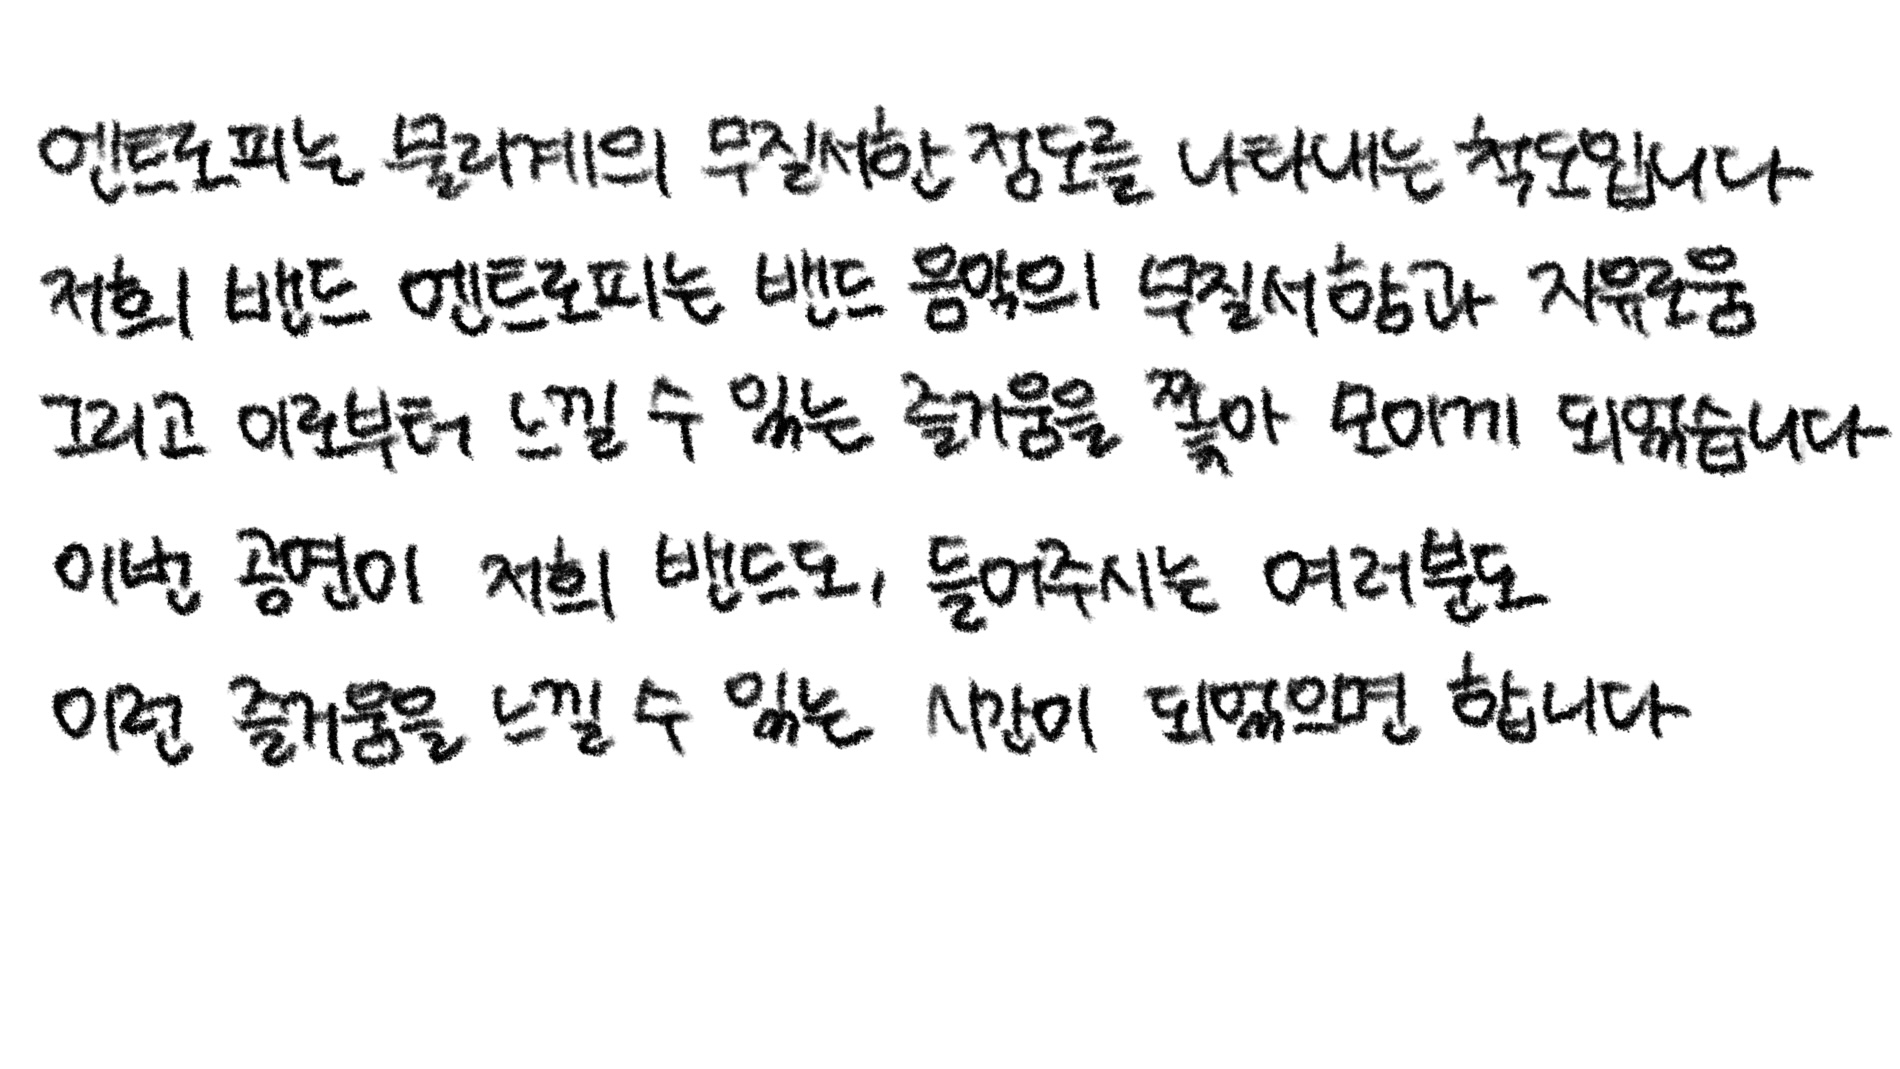 엔트로피는 물리계의 무질서한 정도를 나타내는 척도입니다
저희 밴드 엔트로피는 밴드 음악의 무질서함과 자유로움
그리고 이로부터 느낄 수 있는 즐거움을 쫓아 모이게 되었습니다
이번 공연이 저희 밴드도, 들어주시는 여러분도
이런 즐거움을 느낄 수 있는 시간이 되었으면 합니다